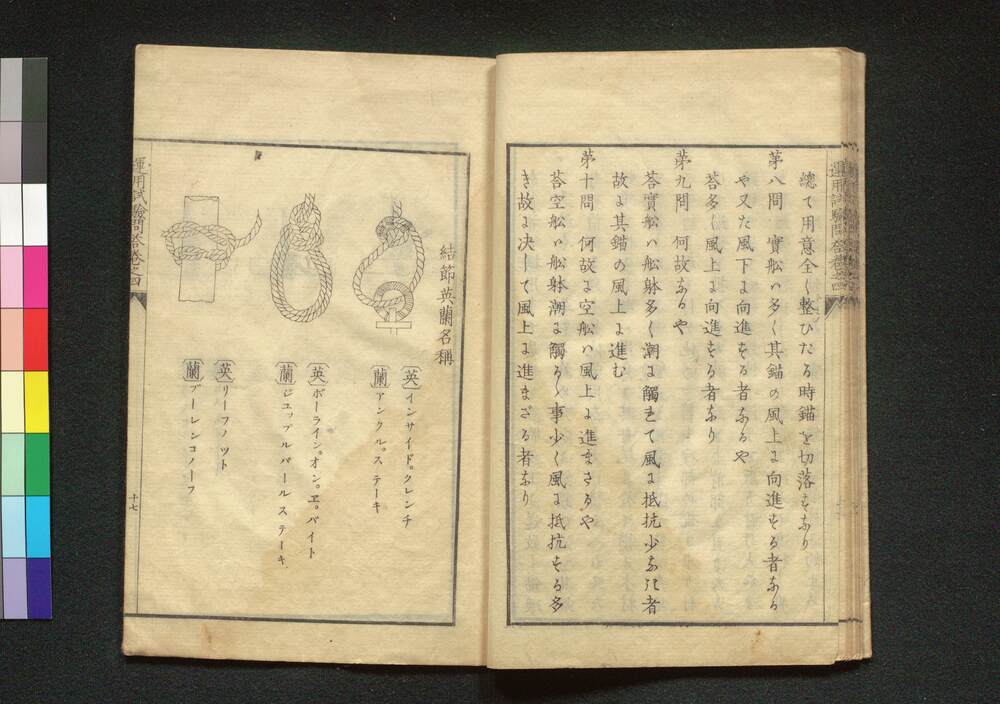 總て用意全く整ひたる時錨を切落すなり
第八問 實舩ハ多く其錨の風上に向進する者なる
や又た風下に向進する者なるや
荅多く風上に向進する者なり
第九問 何故なるや
荅實舩ハ舩躰多く潮に觸きて風に抵抗少なき者
故に其錨の風上に進む
第十問 何故に空舩ハ風上に進まさるや
荅空舩ハ舩躰潮に觸るゝ事少く風に抵抗する多
き故に决して風上に進まざる者なり
運用試驗問荅卷之四
結節英蘭名稱
英 インサイド。クレンチ
蘭 アンクル。ステーキ
英 ボーライン。オン。エ。バイト
蘭 ジユップルパールステーキ
英 リーフノツト
蘭 ブーレンコノーフ
運用試驗問荅卷之四
十七